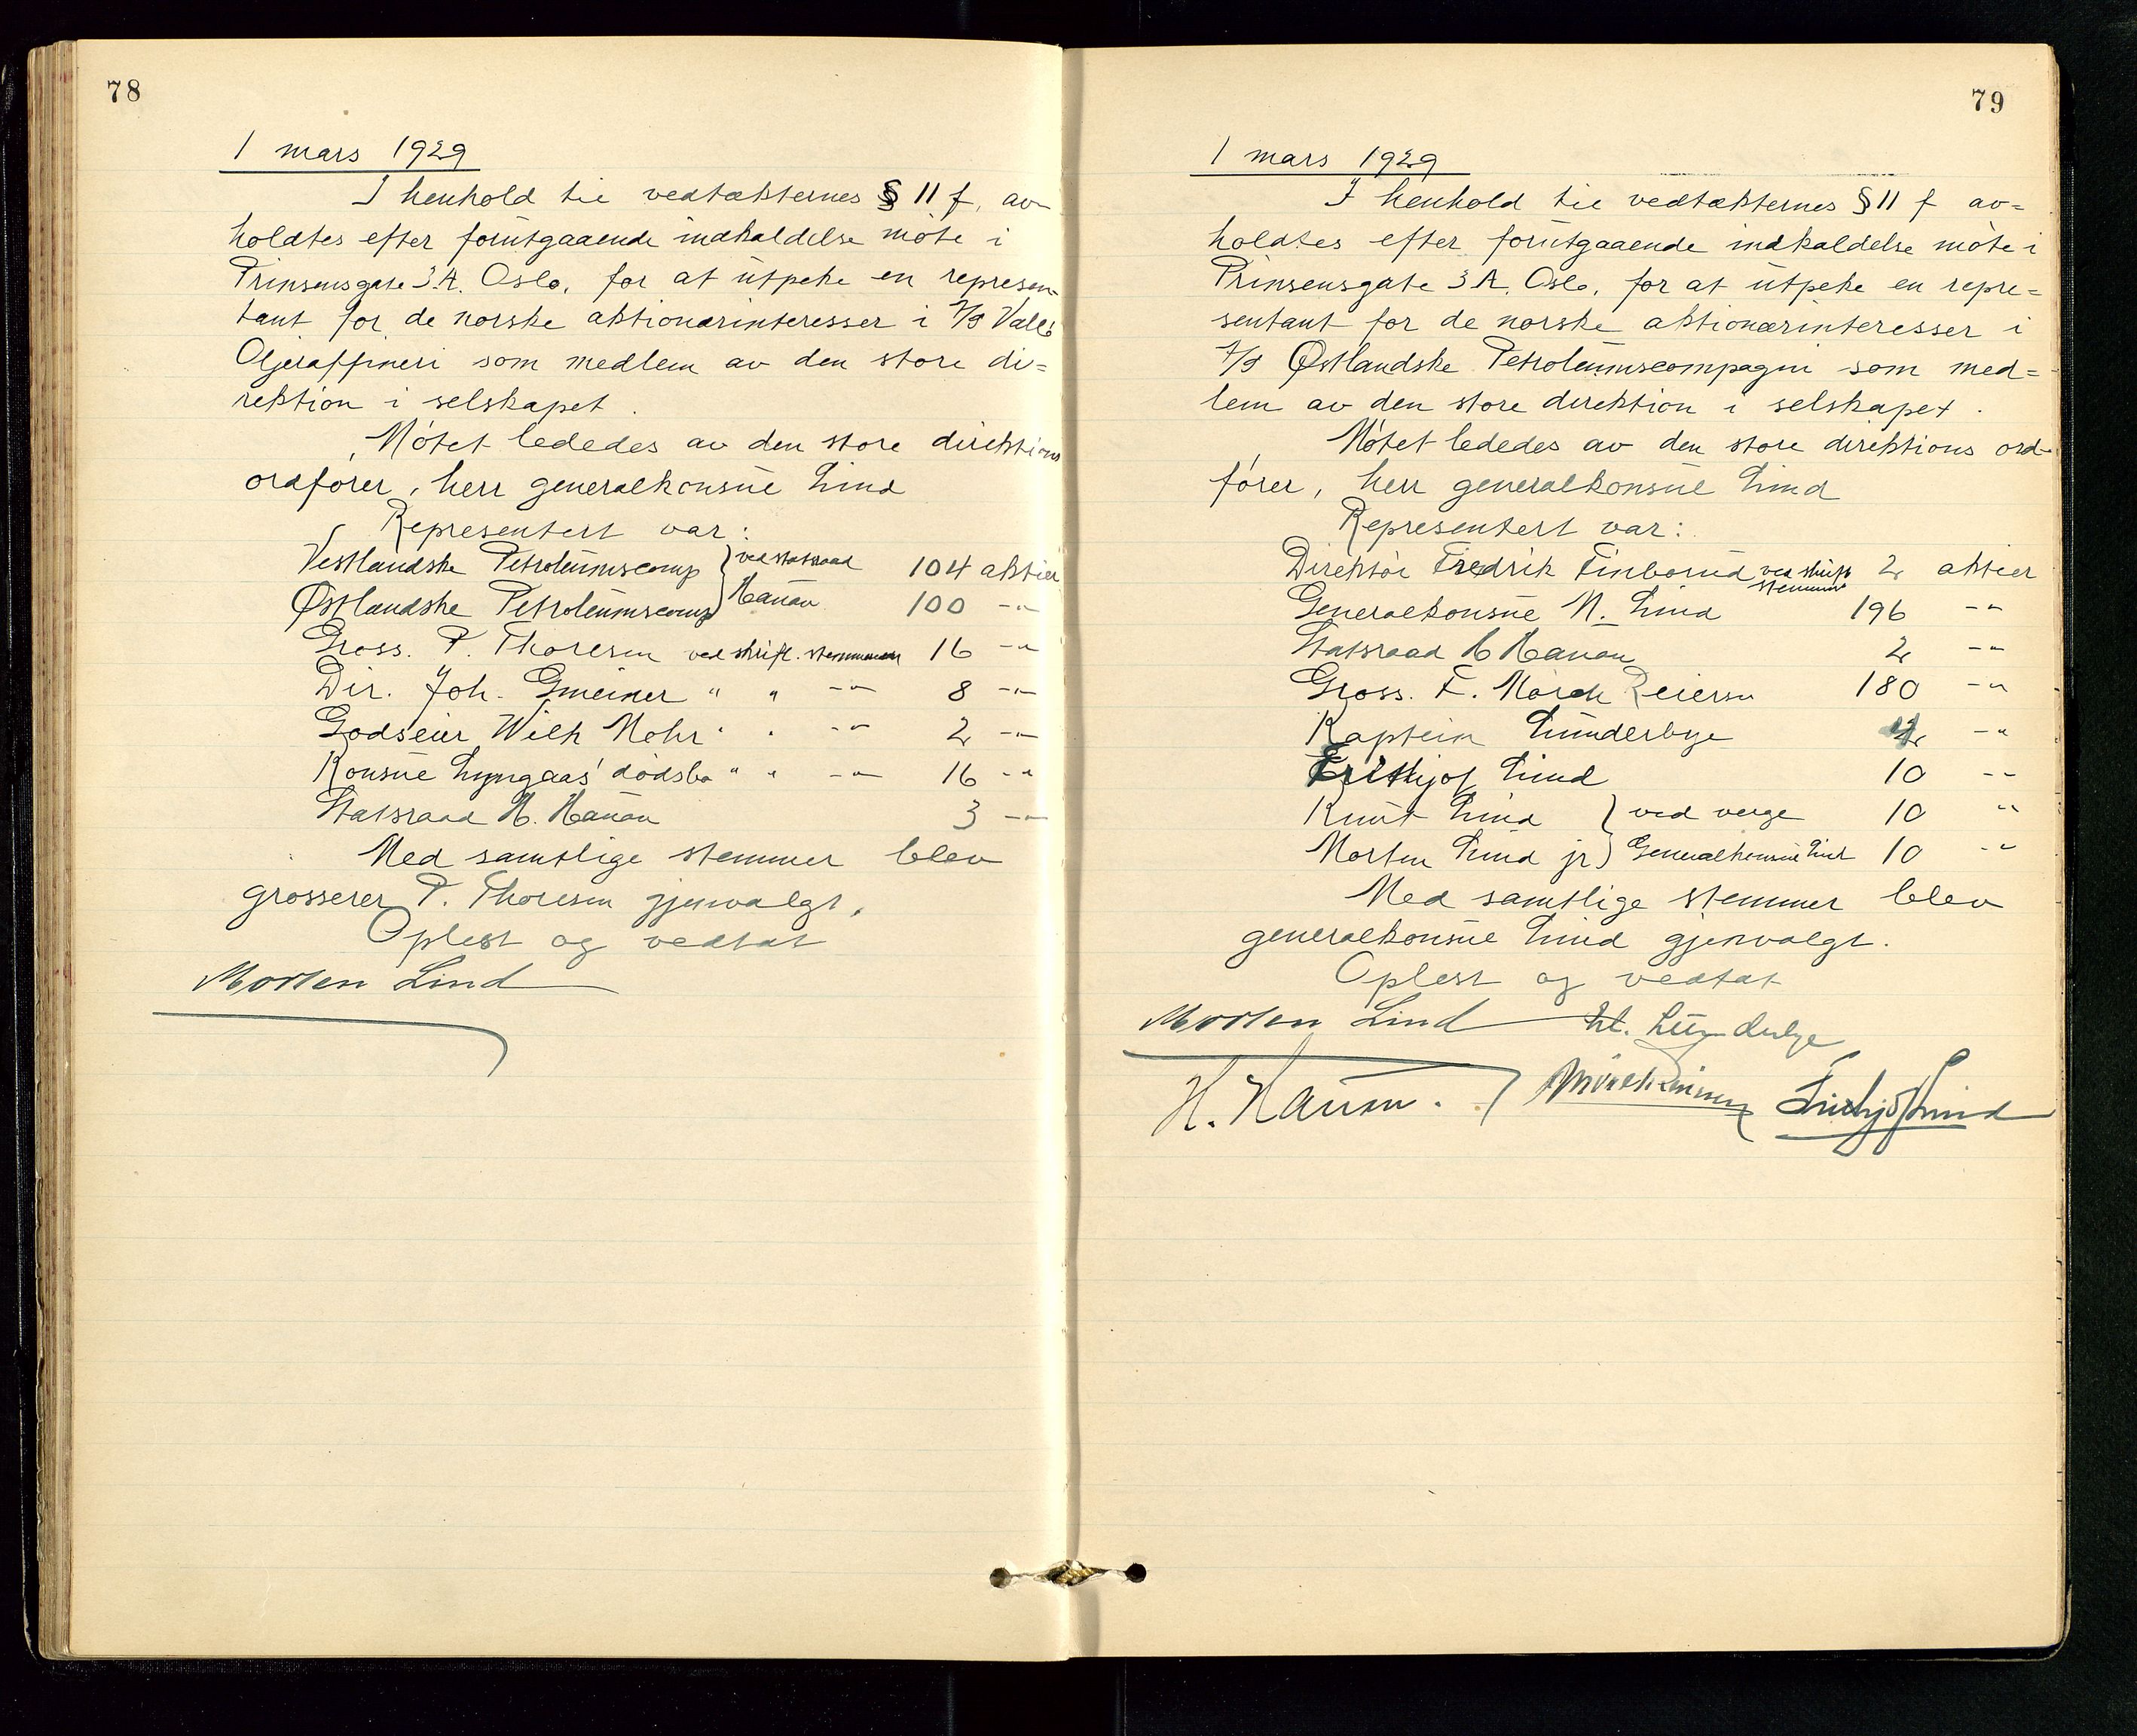 78
1 mars 1929
I henhold til vedtækternes § 11 f, av-
holdtes efter forutgaaende indkaldelse møte i
Prinsensgate 3 A. Oslo, for at utpeke en represen-
tant for de norske aktionærinteresser i A/S Vallø
Oljeraffineri som medlem av den store di=
rektion i selskapet.
Møtet lededes av den store direktions
ordfører, herr generalkonsul Lind
Representert var:
Vestlandske Petroleumscomp } ved statsraad 104 aktier
Østlandske Petroleumscomp } Hauan 100 -"-
Gross. P. Thoresen ved skriftl. stemmeseddel 16 -"-
Dir. Joh. Gmeiner " " -"- 8 -"-
Godseier Wilh Mohr " " -"- 2 -"-
Konsul Lyngaas' dødsbo " " -"- 16 -"-
Statsraad H. Hauan 3 -"-
Med samtlige stemmer blev
grosserer P. Thoresen gjenvalgt.
Oplest og vedtat
Morten Lind
79
1 mars 1929
I henhold til vedtækternes § 11 f av=
holdtes efter forutgaaende indkaldelse møte i
Prinsensgate 3 A. Oslo, for at utpeke en repre=
sentant for de norske aktionærinteresser i
A/S Østlandske Petroleumscompagni som med=
lem av den store direktion i selskapet.
Møtet lededes av den store direktions ord-
fører, herr generalkonsul Lind
Representert var:
Direktør Fredrik Finborud ved skriftl stemme 2 aktier
Generalkonsul M. Lind 196 -"-
Statsraad H Hauan 2 -"-
Gross. F. Mørch Reiersen 180 -"-
Kaptein Lunderbye -"-
Frithjof Lind 10 -"-
Knut Lind } ved verge 10 "
Morten Lind jr } Generalkonsul Lind 10 -"-
Med samtlige stemmer blev
generalkonsul Lind gjenvalgt.
Oplest og vedtat
Morten Lind Lunderbye
H. Hauan. Mørch Reiersen Frithjof Lind